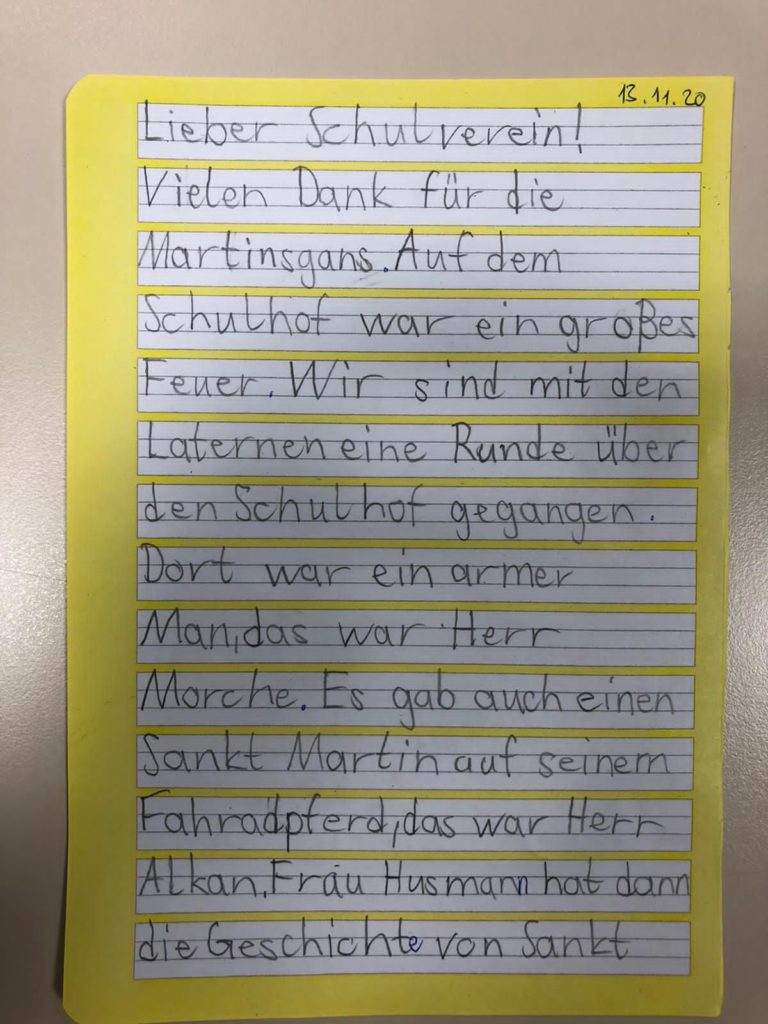 13.11.20
Lieber Schulverein!
Vielen Dank für die
Martinsgans. Auf dem
Schulhof war ein großes
Feuer. Wir sind mit den
Laternen eine Runde über
den Schulhof gegangen.
Dort war ein armer
Man, das war Herr
Morche. Es gab auch einen
Sankt Martin auf seinem
Fahradpferd, das war Herr
Alkan. Frau Husmann hat dann
die Geschichte von Sankt